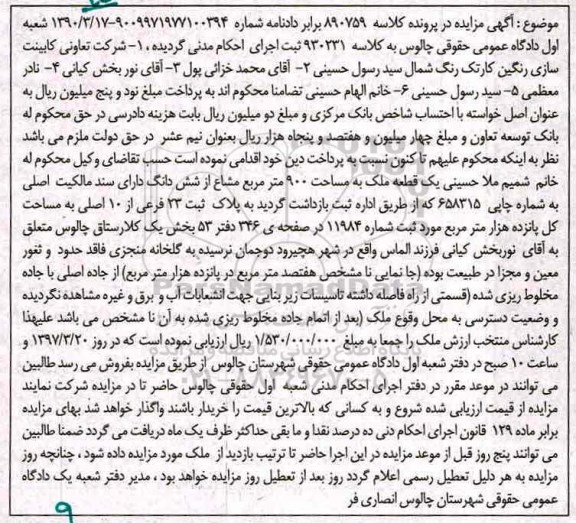 موضوع : آگهی مزایده در پرونده کلاسه ۸۹۰۷۵۹ برابر دادنامه شماره ۹۰۰۹۹۷۱۹۷۷۱۰۰۳۹۴-۱۳۹۰/۳/۱۷ شعبه
اول دادگاه عمومی حقوقی چالوس به کلاسه ۹۳۰۲۳۱ ثبت اجرای احکام مدنی گردیده ، ۱- شرکت تعاونی کابینت
سازی رنگین کارتک رنگ شمال سید رسول حسینی ۲- آقای محمد خزائی پول ۳- آقای نور بخش کیانی ۴- نادر
معظمی ۵- سید رسول حسینی ۶- خانم الهام حسینی تضامنا محکوم اند به پرداخت مبلغ نود و پنج میلیون ریال به
عنوان اصل خواسته با احتساب شاخص بانک مرکزی و مبلغ دو میلیون ریال بابت هزینه دادرسی در حق محکوم له
بانک توسعه تعاون و مبلغ چهار میلیون و هفتصد و پنجاه هزار ریال بعنوان نیم عشر در حق دولت ملزم می باشد
نظر به اینکه محکوم علیهم تا کنون نسبت به پرداخت دین خود اقدامی نموده است حسب تقاضای وکیل محکوم له
خانم شمیم ملا حسینی یک قطعه ملک به مساحت ۹۰۰ متر مربع مشاع از شش دانگ دارای سند مالکیت اصلی
به شماره چاپی ۶۵۸۳۱۵ که از طریق اداره ثبت بازداشت گردید به پلاک ثبت ۲۳ فرعی از ۱۰ اصلی به مساحت
کل پانزده هزار متر مربع مورد ثبت شماره ۱۱۹۸۴ در صفحه ی ۳۴۶ دفتر ۵۳ بخش یک کلارستاق چالوس متعلق
به آقای نوربخش کیانی فرزند الماس واقع در شهر هچیرود دوجمان نرسیده به گلخانه منجزی فاقد حدود و ثغور
معین و مجزا در طبیعت بوده (جا نمایی نا مشخص هفتصد متر مربع در پانزده هزار متر مربع) از جاده اصلی با جاده
مخلوط ریزی شده (قسمتی از راه فاصله داشته تاسیسات زیر بنایی جهت انشعابات آب و برق و غیره مشاهده نگردیده
و وضعیت دسترسی به محل وقوع ملک (بعد از اتمام جاده مخلوط ریزی شده به آن نا مشخص می باشد علیهذا
کارشناس منتخب ارزش ملک را جمعا به مبلغ ۱/۵۳۰/۰۰۰/۰۰۰ ریال ارزیابی نموده است که در روز ۱۳۹۷/۳/۲۰
ساعت ۱۰ صبح در دفتر شعبه اول دادگاه عمومی حقوقی شهرستان چالوس از طریق مزایده بفروش می رسد طالبین
می توانند در موعد مقرر در دفتر اجرای احکام مدنی شعبه اول حقوقی چالوس حاضر تا در مزایده شرکت نمایند
مزایده از قیمت ارزیابی شده شروع و به کسانی که بالاترین قیمت را خریدار باشند واگذار خواهد شد بهای مزایده
برابر ماده ۱۲۹ قانون اجرای احکام دنی ده درصد نقدا و ما بقی حداکثر ظرف یک ماه دریافت می گردد ضمنا طالبین
می توانند پنج روز قبل از موعد مزایده در این اجرا حاضر تا ترتیب بازدید از ملک مورد مزایده داده شود ، چنانچه روز
مزایده به هر دلیل تعطیل رسمی اعلام گردد روز بعد از تعطیل روز مزایده خواهد بود ، مدیر دفتر شعبه یک دادگاه
عمومی حقوقی شهرستان چالوس انصاری فر